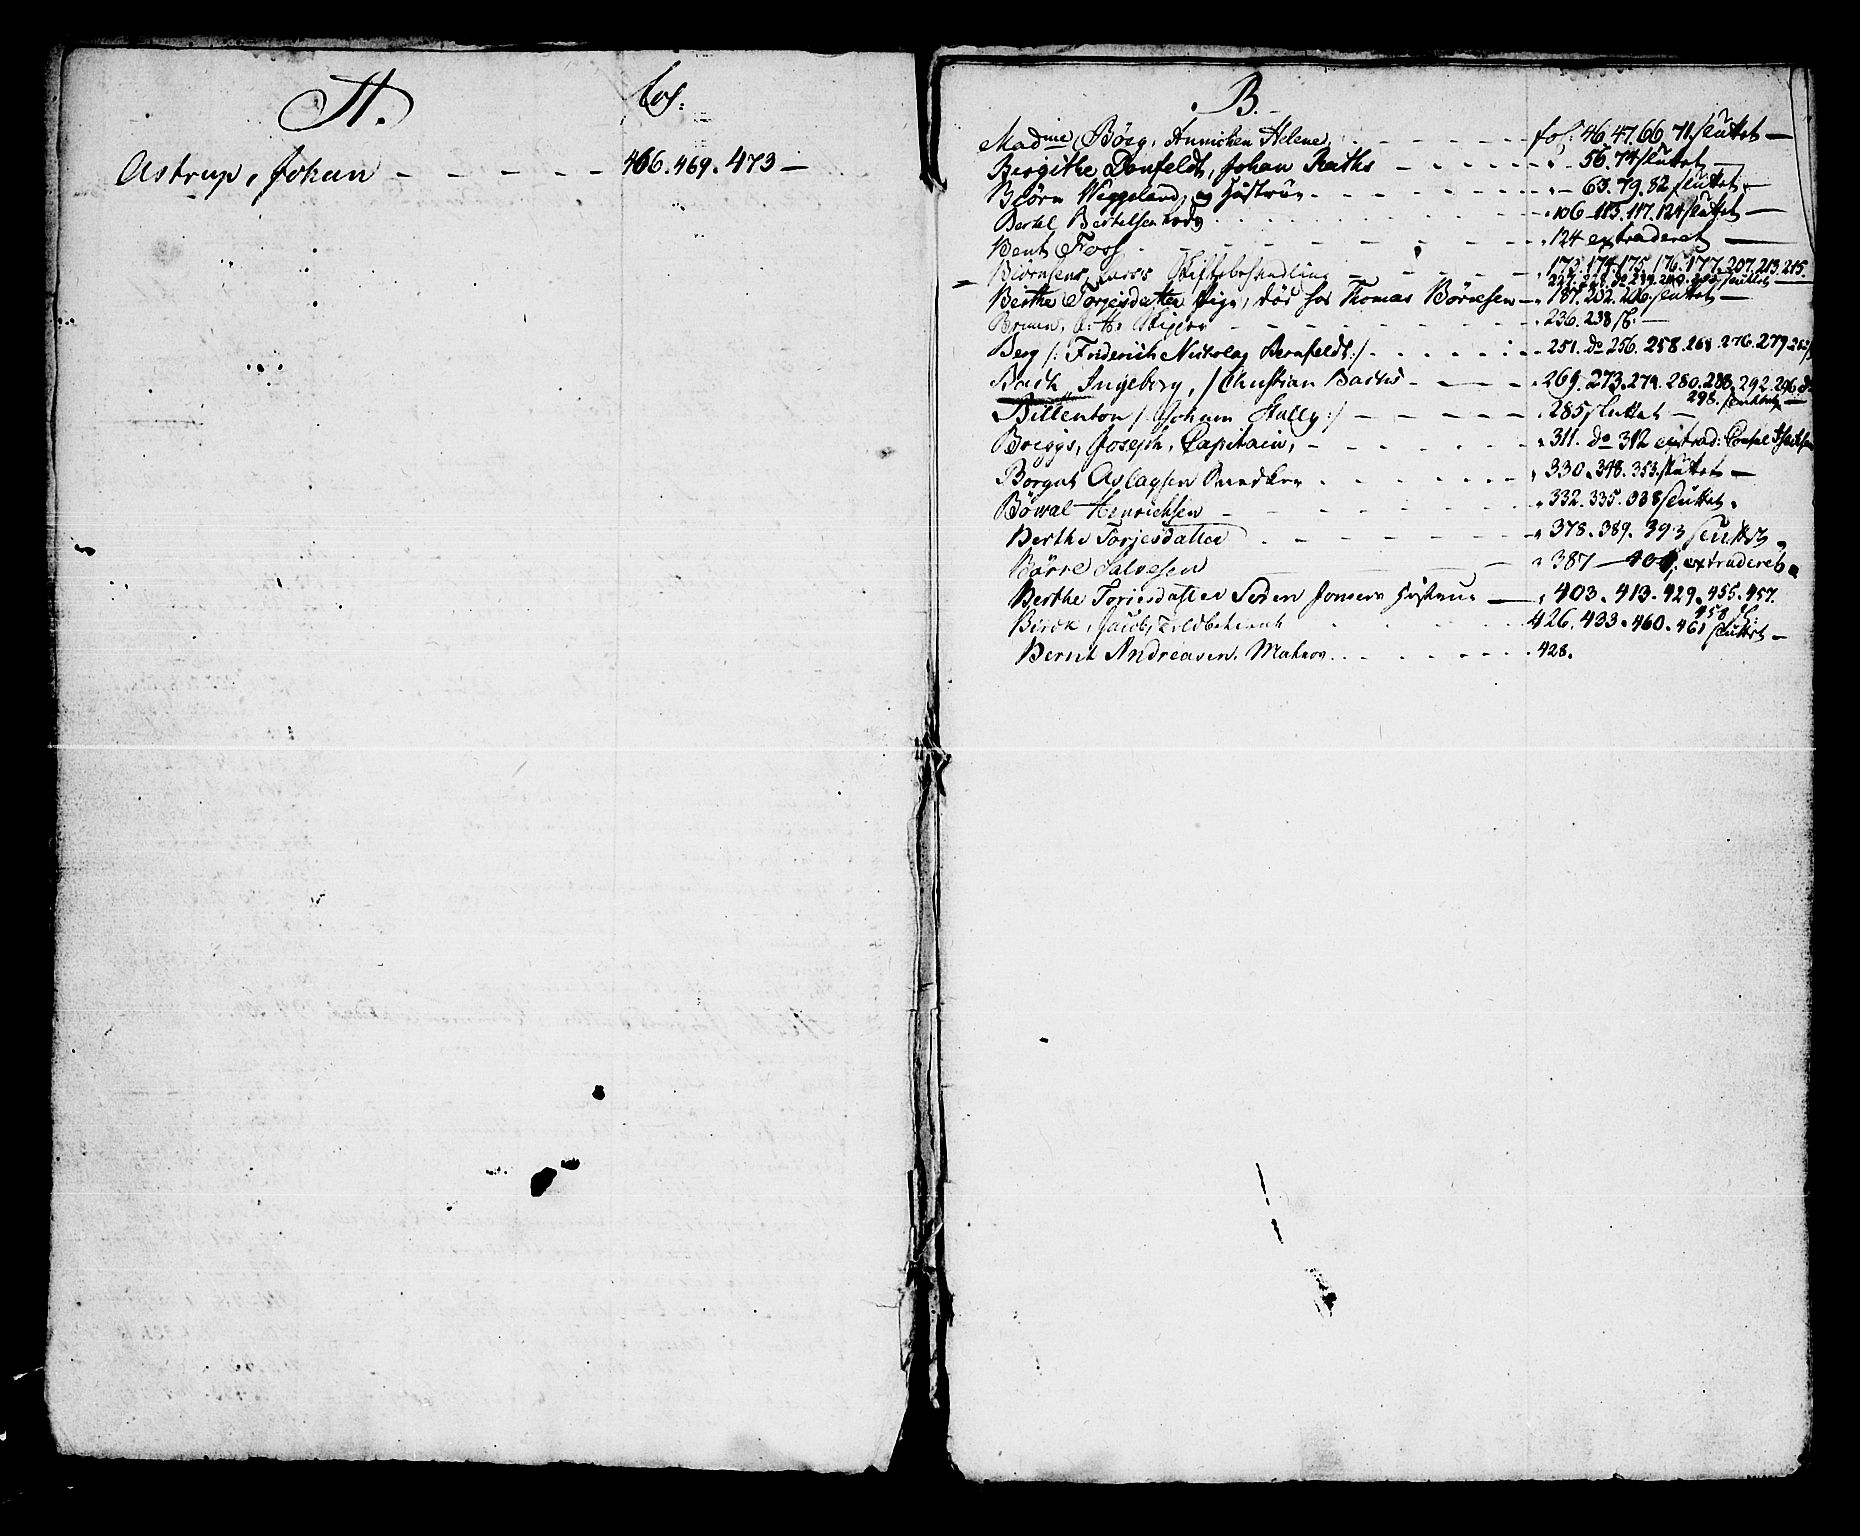 A.
fol:
Astrup, Johan - - - - - - 466. 469. 473 -
B.
Madme Börg, Annichen Helene, - - - - - - fol: 46. 47. 66. 71. sluttet -
Birgithe Danfeldt, Johan Raths - - - - - " 56. 74 sluttet -
Biörn Weggeland, og Hustrue - - - - - " 63. 79. 82 sluttet -
Bertel Bertelsen - - - - - " 106. 113. 117. 124 sluttet -
Bent Foss - - - - - " 124 extraderet -
Biörnsens, Lars Skiftebehandling - - - - - " 173. 174. 175. 176. 177. 207. 213. 215.
sluttet -
Birthe Torjesdatter Pige, död hos Thomas Börresen - " 187. 202. 206. sluttet -
- - - - - " 236. 238 sl: -
Berg /: Friderich Nicolay Bernfeldt :/ - - - - - " 251. do 256. 258. 268. 276. 279
Bach Ingeborg, / Christian Bachs - - - - " 269. 273. 274. 280. 288. 292. 296 do
298. sluttet -
Billenton / Johann Hally :/ - - - - " 285 sluttet -
Briggs, Joseph, Capitain, - - - - - " 311. do 312 extrad: Consul Isachsen
Borgut Aslagsen Snedker - - - - - " 330. 348. 353. sluttet -
Böwal Henrichsen - - - - - " 332. 335. 338 sluttet.
Berthe Torjesdatter - - - - - " 378. 389. 393 sluttet
Börre Salvesen - " 387 - 401. extraderet.
Berthe Toriesdatter Sören Jonsens Hustrue - " 403. 413. 429. 455. 457.
458 sl:
Birck, Jacob, Toldbetient - - - 426. 433. 460. 461 sluttet -
Bernt Andreasen. Matros - - - - - " 428.